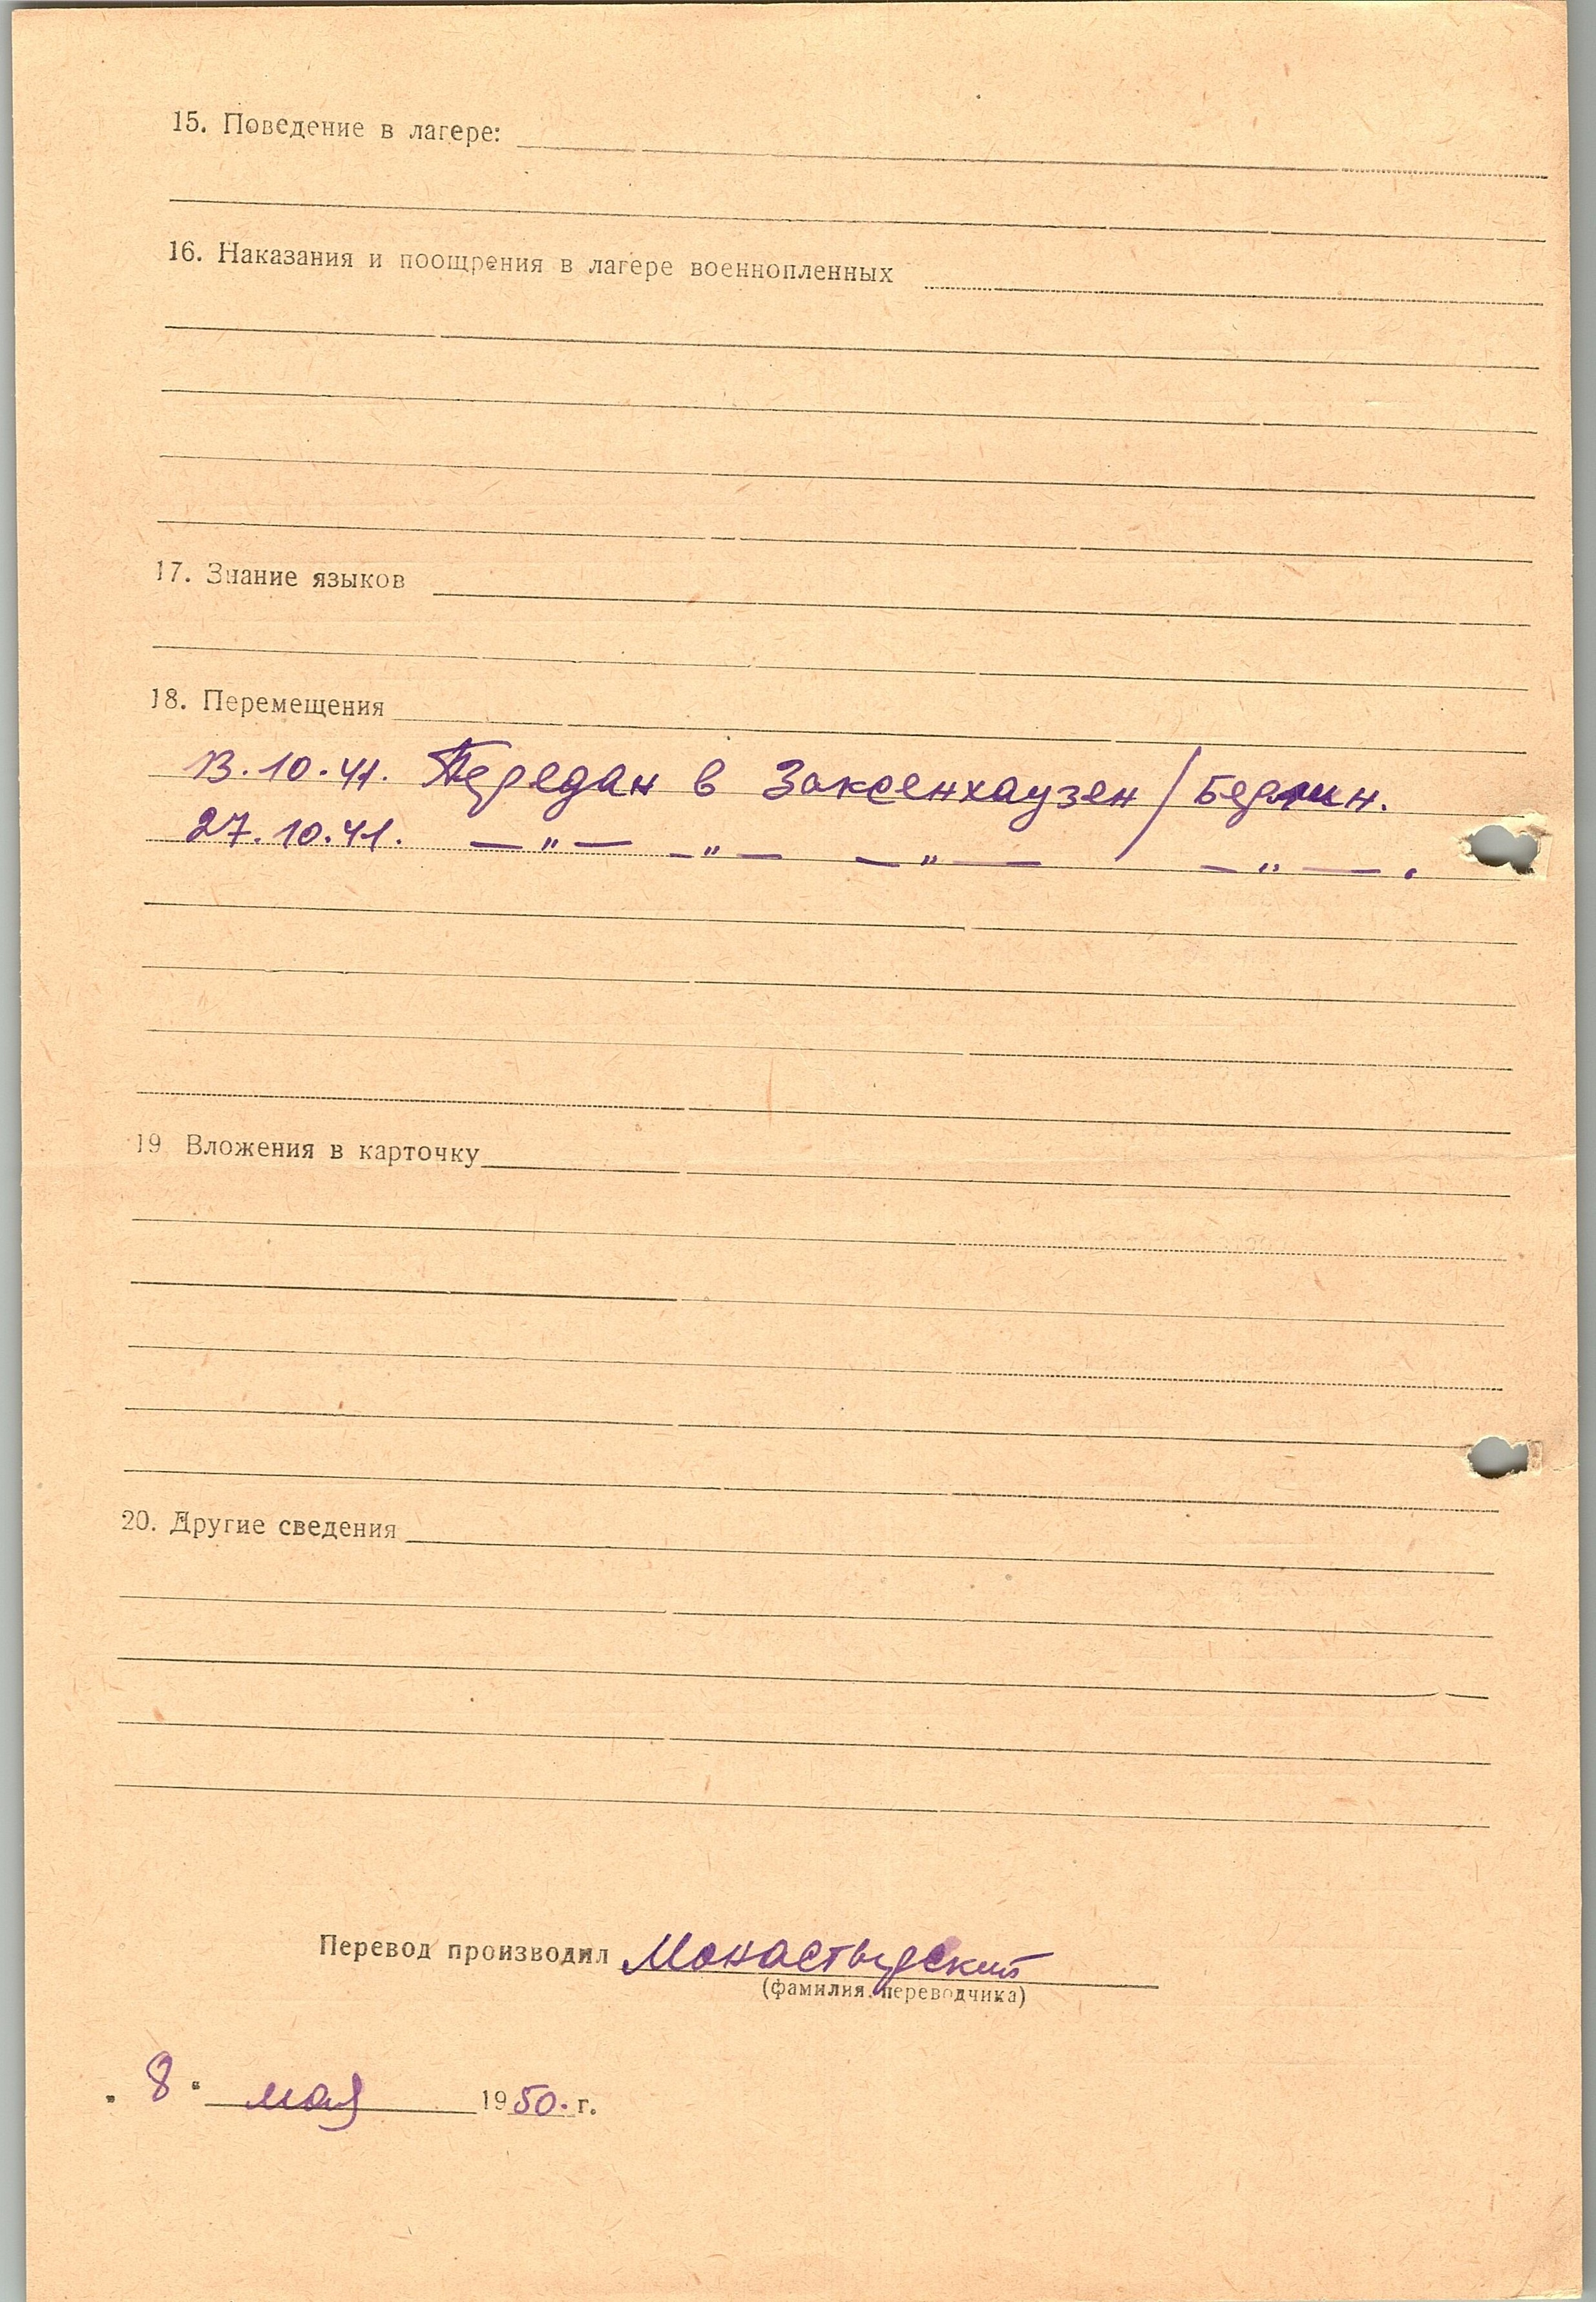 15. Поведение в лагере:
16. Наказания и поощрения в лагере военнопленных
17. Знание языков
18. Перемещения
13.10.41. Передан в Заксенхаузен / Берлин.
27.10.41. — " — — " — — " — — " — .
19 Вложения в карточку
20. Другие сведения
Перевод производил Монастырский
(фамилия переводчика)
" 8 " мая 1950. г.